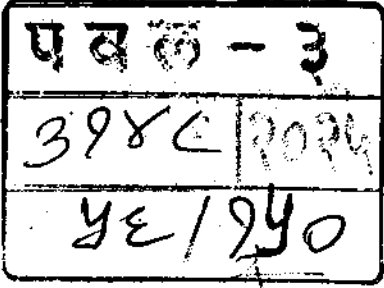 पवल - ३
३१४८ २०२५
५६/१५०